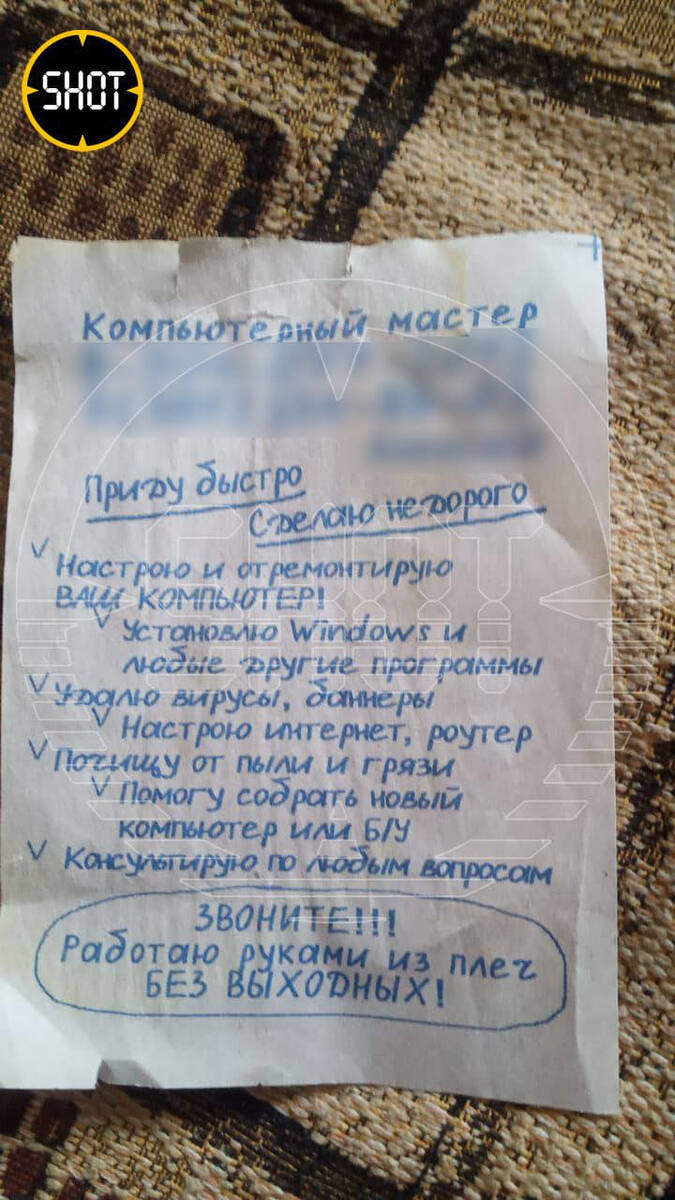 SHOT
Компьютерный мастер
Приду быстро
Сделаю недорого
Настрою и отремонтирую
ВАШ КОМПЬЮТЕР!
Установлю Windows и
любые другие программы
Удалю вирусы, баннеры
Настрою интернет, роутер
Почищу от пыли и грязи
Помогу собрать новый
компьютер или Б/У
Консультирую по любым вопросам
ЗВОНИТЕ!!!
Работаю руками из плеч
БЕЗ ВЫХОДНЫХ!
SHOT